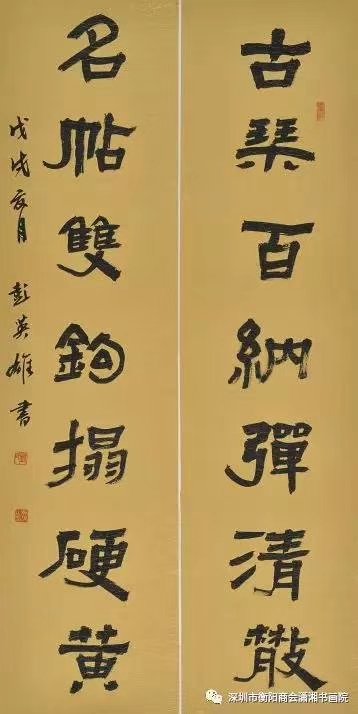 古琴百納彈清散
名帖雙鉤搨硬黄
戊戌夏月 彭英雄書
深圳市衡阳商会潇湘书画院